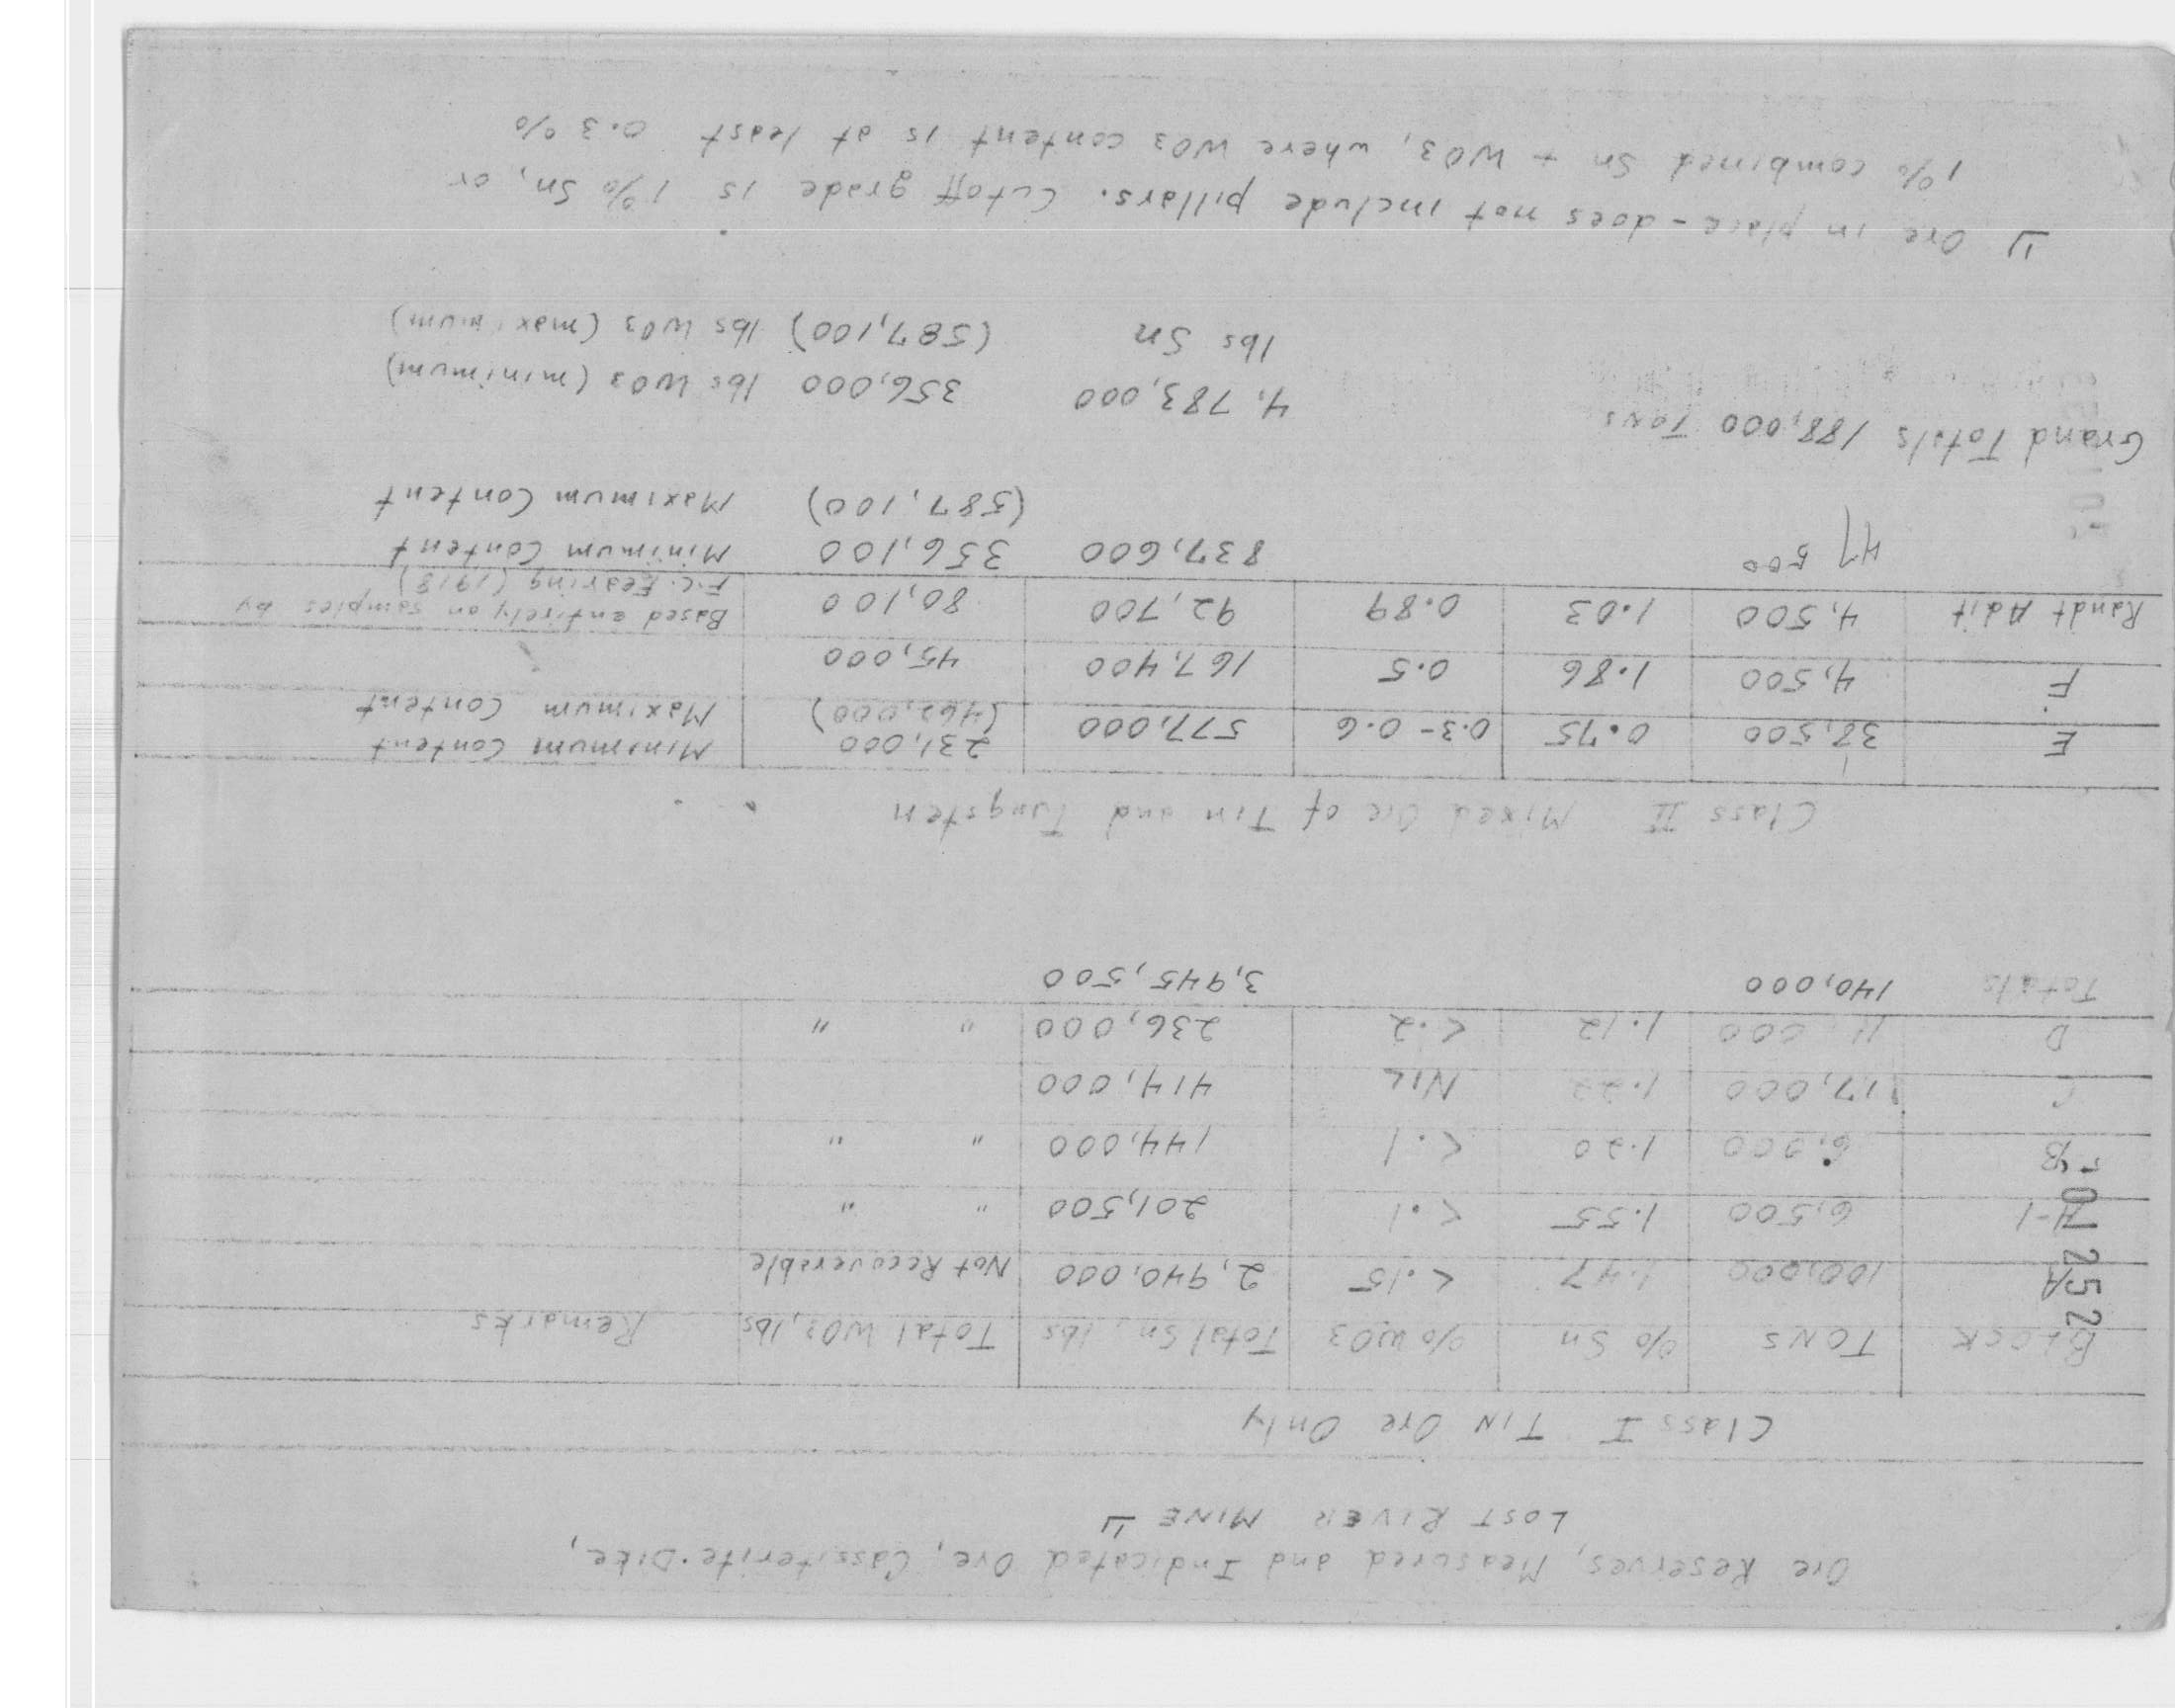 Ore Reserves, Measured and Indicated Ore, Cassiterite Dike,
LOST RIVER MINE 1/
Class I TIN Ore Only
BLOCK TONS % Sn % WO3 Total Sn, lbs Total WO3, lbs Remarks
A 100,000 1.47 <.15 2,940,000 Not Recoverable
A-1 6,500 1.55 <.1 201,500 " "
B 6,000 1.20 <.1 144,000 " "
C 17,000 1.22 NIL 414,000
D 11,000 1.12 <.2 236,000 " "
Totals 140,000 3,945,500
Class II Mixed Ore of Tin and Tungsten
E 38,500 0.75 0.3-0.6 577,000 231,000 Minimum Content
(462,000) Maximum Content
F 4,500 1.86 0.5 167,400 45,000
Randt Adit 4,500 1.03 0.89 92,700 80,100 Based entirely on samples by
F.C. Fearing (1918)
47 500 837,600 356,100 Minimum Content
(587,100) Maximum Content
Grand Totals 188,000 Tons 4,783,000 356,000 lbs WO3 (minimum)
lbs Sn (587,100) lbs WO3 (maximum)
1/ Ore in place - does not include pillars. Cutoff grade is 1% Sn, or
1% combined Sn + WO3, where WO3 content is at least 0.3%
01252